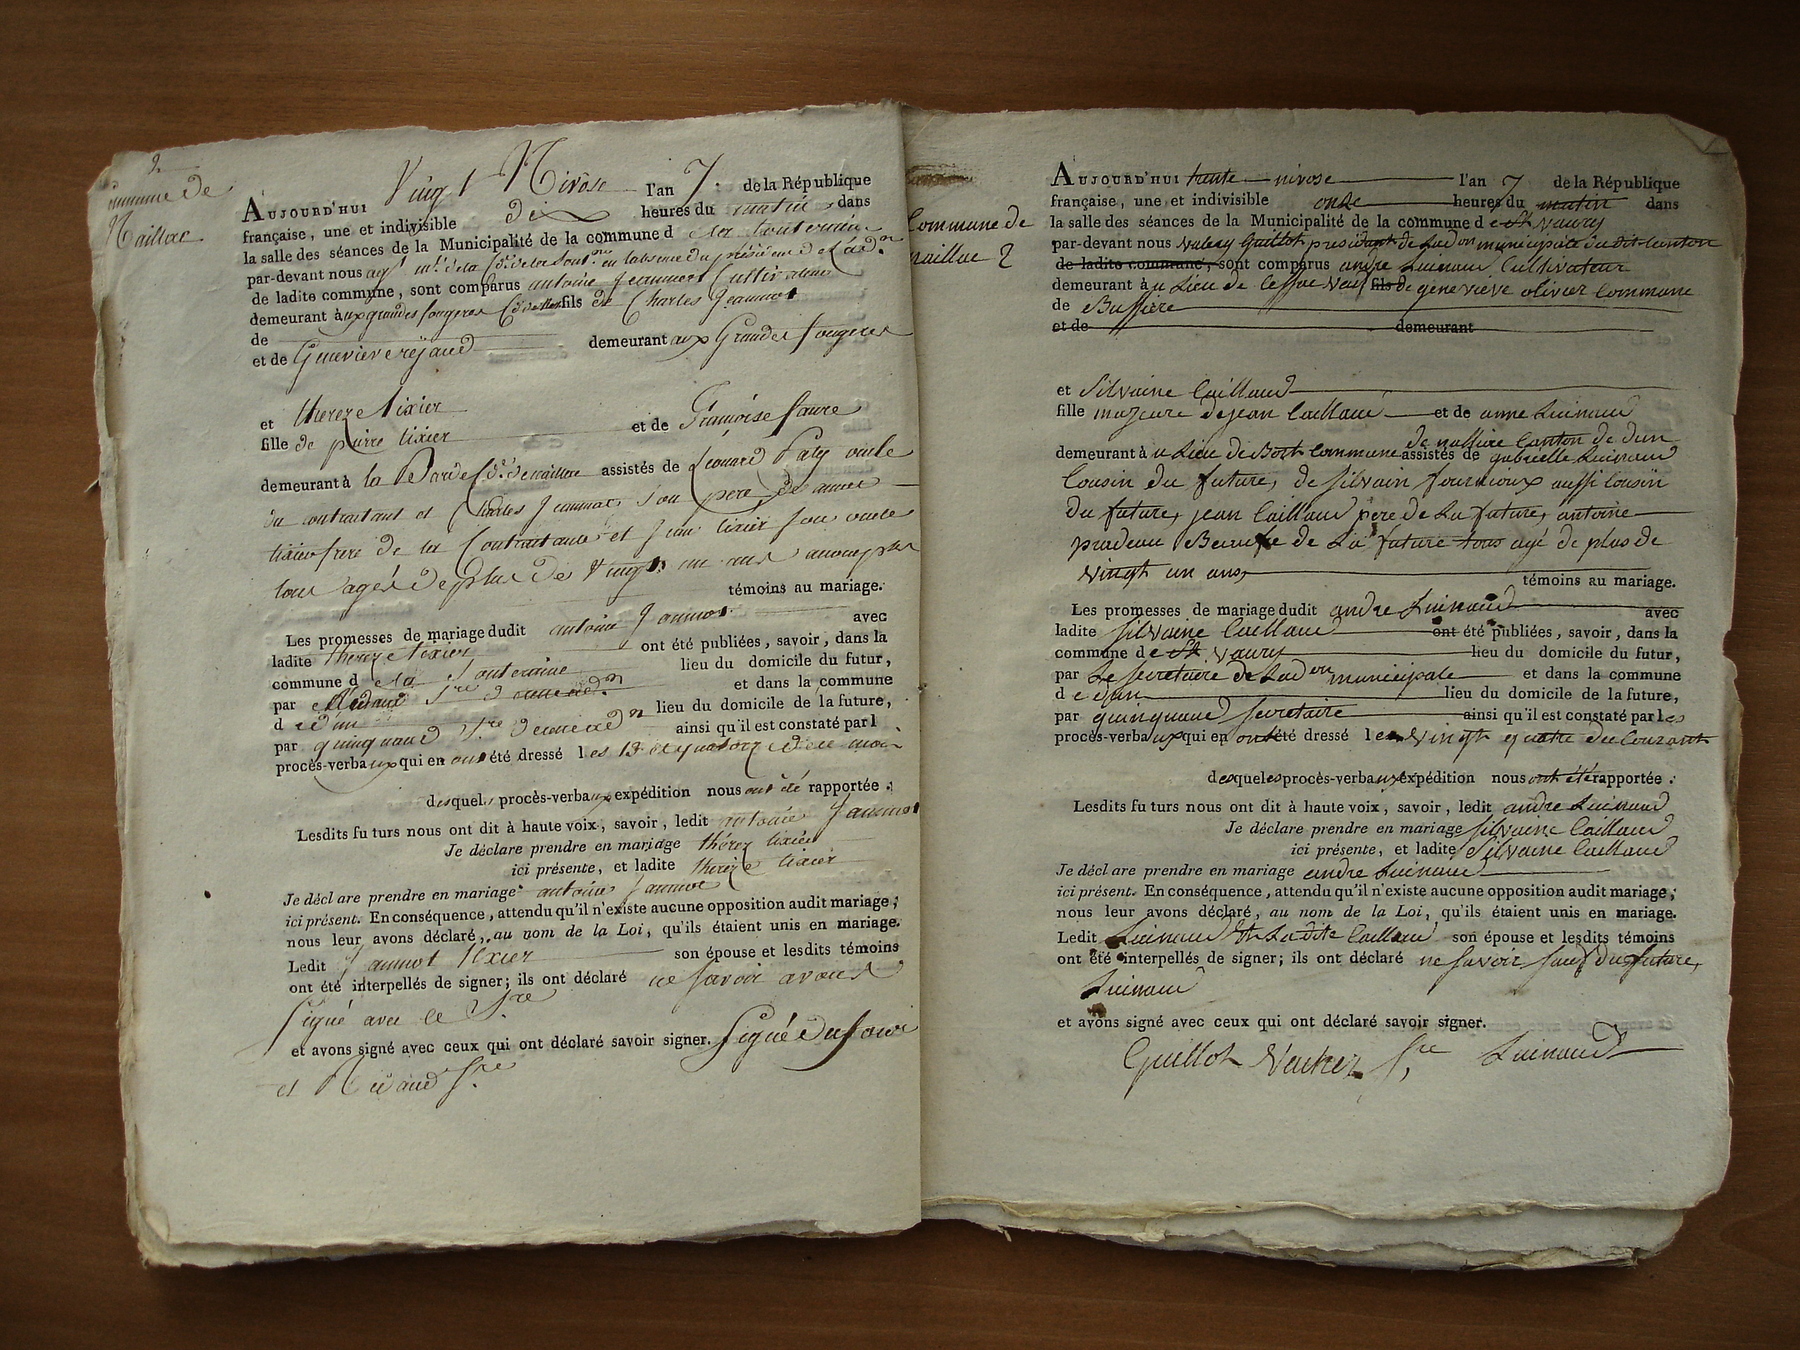 2
Commune de
Naillac
AUJOURD'HUI Vingt Nivôse l'an 7. de la République
française, une et indivisible dix heures du matin dans
la salle des séances de la Municipalité de la commune d e la Souteraine
par-devant nous agt mal de la Cne de la Soutne en l'absence du président de l'adon
de ladite commune, sont comparus antoine Jeammot Cultivateur
demeurant à ux grandes fougeres fils de Charles Jeammot
de
et de Genevieve rejaud demeurant aux Grandes fougeres
et thereze tixier
fille de pierre tixier et de Françoise faure
demeurant à la Barde Cne de naillac assistés de Léonard Paty oncle
du contractant et Charles Jeammot son pere de
tixier frere de la Contractante et Jean tixier son oncle
tous agés de plus de vingt un ans
témoins au mariage.
Les promesses de mariage dudit antoine Jammot avec
ladite thereze tixier ont été publiées, savoir, dans la
commune d e la Souteraine lieu du domicile du futur,
par Sre de et dans la commune
d e dun lieu du domicile de la future,
par quinquaud Sre de ainsi qu'il est constaté par l
procès-verba ux qui en ont été dressé l es 13 et quatorze de ce mois
desquels procès-verbaux expédition nous ont été rapportée:
Lesdits futurs nous ont dit à haute voix, savoir, ledit antoine Jammot
Je déclare prendre en mariage thérez tixier
ici présente, et ladite thérèze tixier
Je déclare prendre en mariage antoine Jammot
ici présent. En conséquence, attendu qu'il n'existe aucune opposition audit mariage;
nous leur avons déclaré, au nom de la Loi, qu'ils étaient unis en mariage.
Ledit Jammot tixier son épouse et lesdits témoins
ont été interpellés de signer; ils ont déclaré ne savoir avons
signé avec le Sre
et avons signé avec ceux qui ont déclaré savoir signer. Signé Dufour
et Sre
Commune de
naillac 2
AUJOURD'HUI trente nivose l'an 7 de la République
française, une et indivisible onze heures du matin dans
la salle des séances de la Municipalité de la commune d e St Vaury
par-devant nous valery Guillot président de Ladon municipale dudit canton
de ladite commune, sont comparus andre Luinaud Cultivateur
demeurant à u Lieu de fils de genevieve olivier Commune
de Bussiere
et de demeurant
et Silvaine Caillaud
fille majeure de jean Caillaud et de anne Luinaud
de naillac Canton de dun
demeurant à u Lieu de Bost Commune assistés de gabrielle Luinaud
Cousin du future, de silvain fournioux aussi Cousin
du future, jean Caillaud pere de La future, antoine
pradeau Beaufre de La future tous agé de plus de
vingt un ans, témoins au mariage.
Les promesses de mariage dudit andre Luinaud avec
ladite Silvaine Caillaud ont été publiées, savoir, dans la
commune d e St Vaury lieu du domicile du futur,
par Le secretaire de Ladon municipale et dans la commune
d e dun lieu du domicile de la future,
par quinquaud secretaire ainsi qu'il est constaté par les
procès-verba ux qui en ont été dressé l e vingt quatre du Courant
desquels procès-verbaux expédition nous ont été rapportée:
Lesdits futurs nous ont dit à haute voix, savoir, ledit andre Luinaud
Je déclare prendre en mariage Silvaine Caillaud
ici présente, et ladite Silvaine Caillaud
Je déclare prendre en mariage andre Luinaud
ici présent. En conséquence, attendu qu'il n'existe aucune opposition audit mariage;
nous leur avons déclaré, au nom de la Loi, qu'ils étaient unis en mariage.
Ledit Luinaud Et Ladite Caillaud son épouse et lesdits témoins
ont été interpellés de signer; ils ont déclaré ne savoir sauf du future,
Luinaud
et avons signé avec ceux qui ont déclaré savoir signer.
Guillot Vacher Sre Luinaud